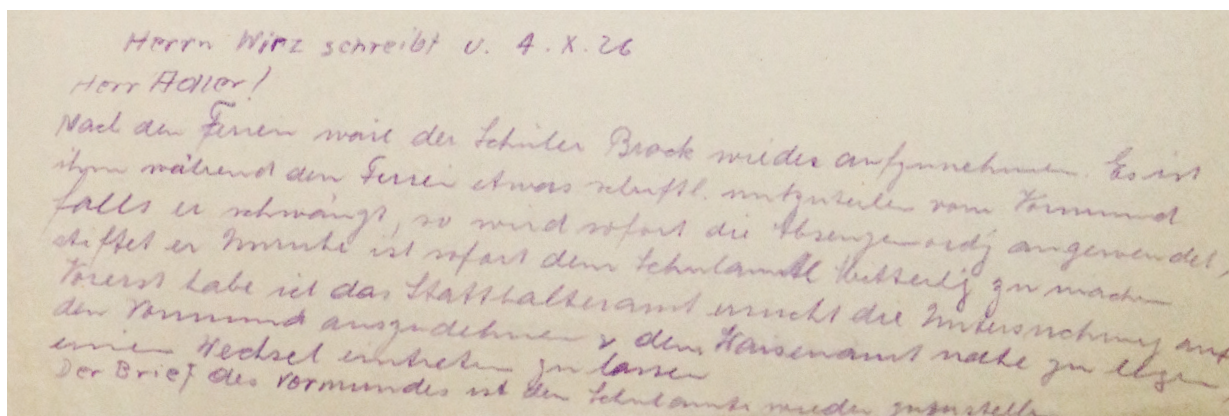 Herrn Wirz schreibt v. 4.X.26
Herr Adler!
Nach den Ferien wäre der Schüler Brock wieder aufzunehmen. Es ist
ihm während den Ferien etwas schriftl. mitzuteilen vom Vormund
falls er schwängt, so wird sofort die angewendet,
stiftet er Unruhe ist sofort dem Schulamt zu machen
Vorerst habe ich das Statthalteramt ersucht die Untersuchung auf
den Vormund auszudehnen & dem Waisenamt nahe zu legen
einen Wechsel eintreten zu lassen
Der Brief des Vormundes ist dem Schulamte wieder zuzustellen